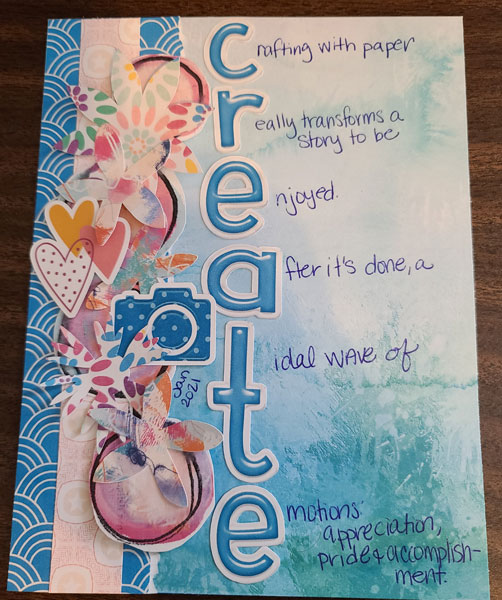 crafting with paper
really transforms a
story to be
enjoyed.
after it's done, a
tidal wave of
Jan
2021
emotions:
appreciation,
pride & accomplish-
ment.